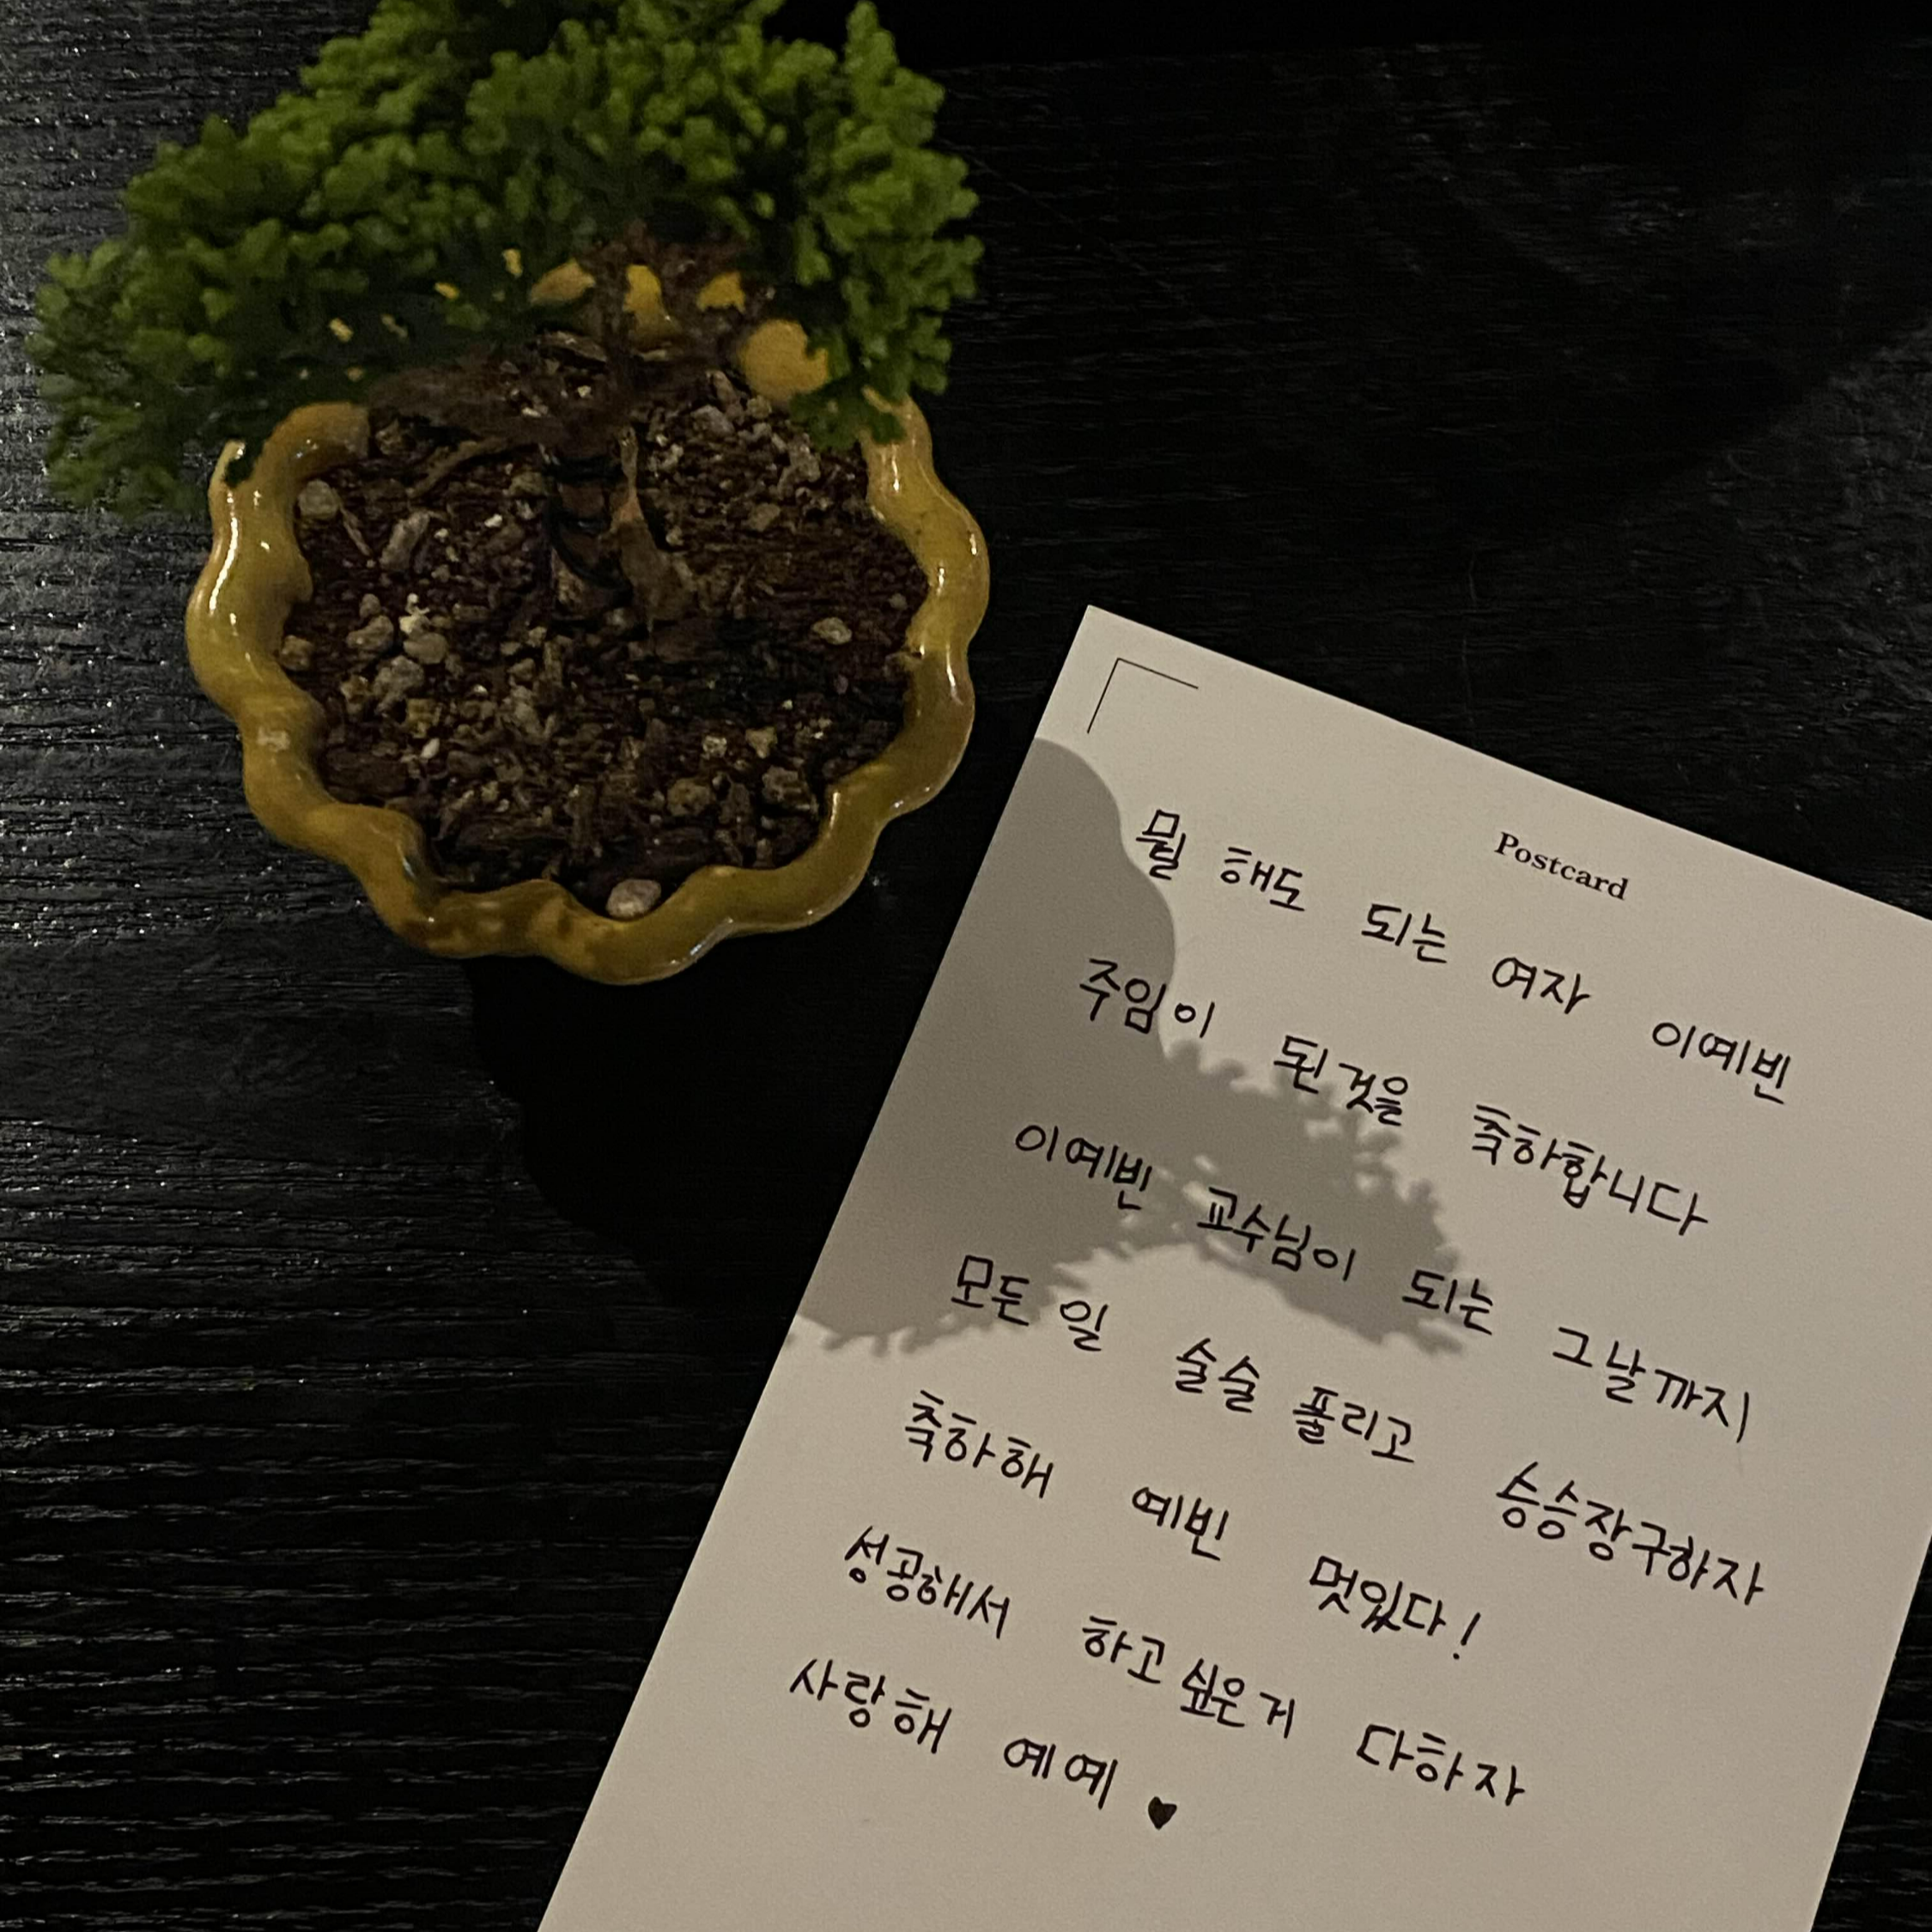 Postcard
뭘 해도 되는 여자 이예빈
주임이 된것을 축하합니다
이예빈 교수님이 되는 그날까지
모든 일 술술 풀리고 승승장구하자
축하해 예빈 멋있다!
성공해서 하고싶은거 다하자
사랑해 예예 ♥